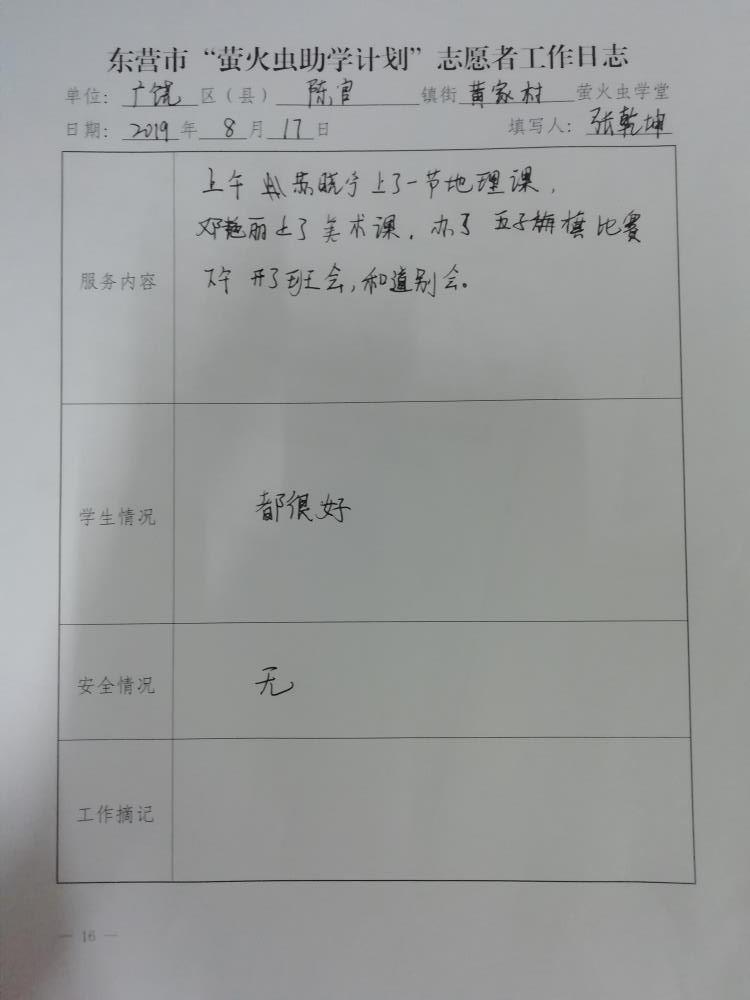 东营市“萤火虫助学计划”志愿者工作日志
单位：广饶区（县）陈官镇街黄家村萤火虫学堂
日期：2019年8月17日 填写人：张乾坤
服务内容
上午 苏晓宇上了一节地理课，
邓艳丽上了美术课，办了五子梅棋比赛
下午开了班会，和道别会。
学生情况
都很好
安全情况
无
工作摘记
— 16 —